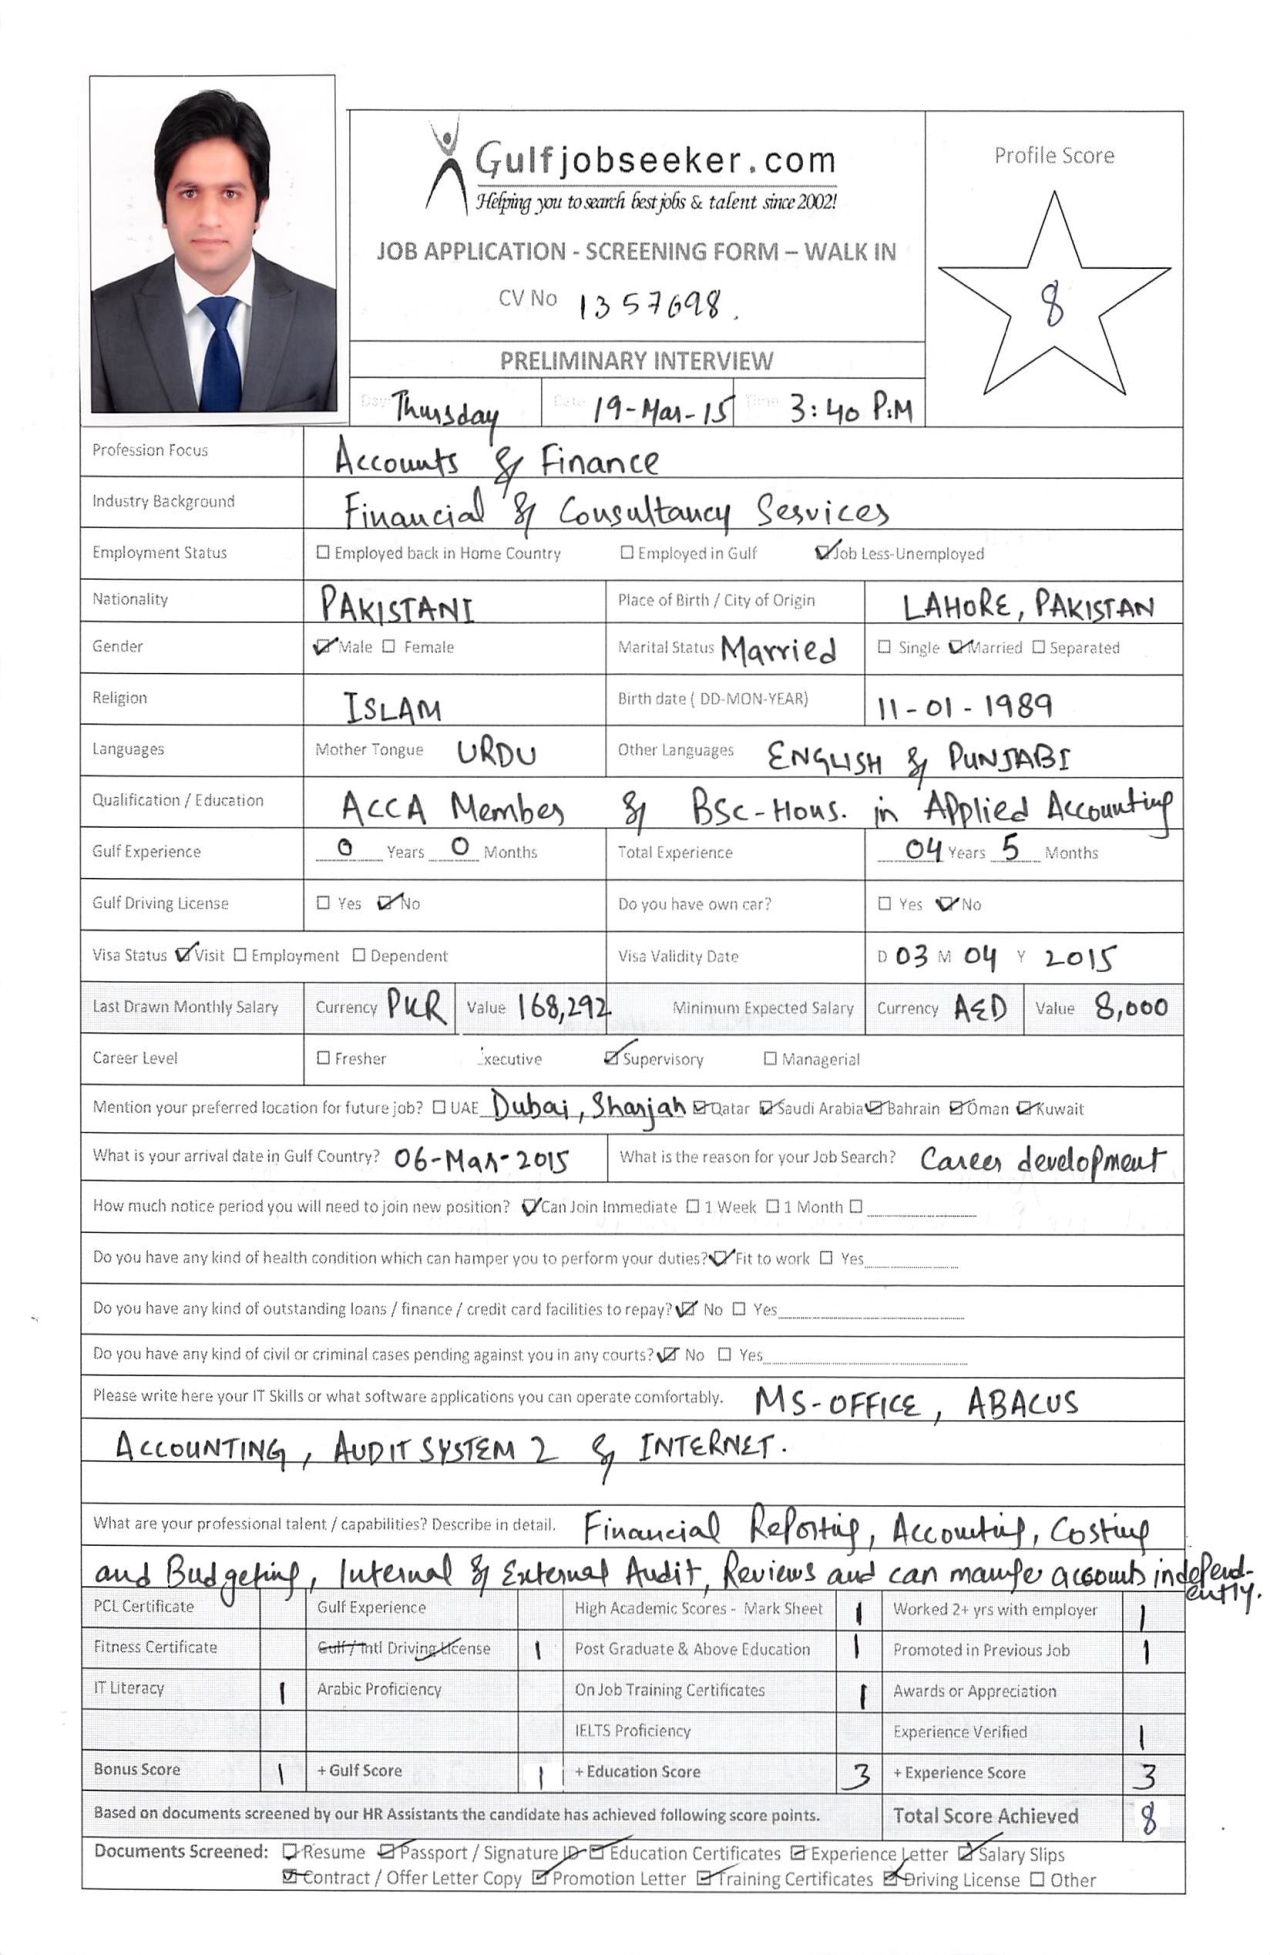 Gulfjobseeker.com
Helping you to search best jobs & talent since 2002!
JOB APPLICATION - SCREENING FORM – WALK IN
CV No 1357698.
Profile Score
8
PRELIMINARY INTERVIEW
Day: Thursday Date 19-Mar-15 Time 3:40 P.M
Profession Focus Accounts & Finance
Industry Background Financial & Consultancy Services
Employment Status ☐ Employed back in Home Country ☐ Employed in Gulf ☑ Job Less-Unemployed
Nationality PAKISTANI Place of Birth / City of Origin LAHORE, PAKISTAN
Gender ☑ Male ☐ Female Marital Status Married ☐ Single ☑ Married ☐ Separated
Religion ISLAM Birth date ( DD-MON-YEAR) 11-01-1989
Languages Mother Tongue URDU Other Languages ENGLISH & PUNJABI
Qualification / Education ACCA Member & BSc-Hons. in Applied Accounting
Gulf Experience 0 Years 0 Months Total Experience 04 Years 5 Months
Gulf Driving License ☐ Yes ☑ No Do you have own car? ☐ Yes ☑ No
Visa Status ☑ Visit ☐ Employment ☐ Dependent Visa Validity Date D 03 M 04 Y 2015
Last Drawn Monthly Salary Currency PKR Value 168,292 Minimum Expected Salary Currency AED Value 8,000
Career Level ☐ Fresher Executive ☑ Supervisory ☐ Managerial
Mention your preferred location for future job? ☐ UAE Dubai, Sharjah ☑ Qatar ☑ Saudi Arabia ☑ Bahrain ☑ Oman ☑ Kuwait
What is your arrival date in Gulf Country? 06-Mar-2015 What is the reason for your Job Search? Career development
How much notice period you will need to join new position? ☑ Can Join Immediate ☐ 1 Week ☐ 1 Month ☐
Do you have any kind of health condition which can hamper you to perform your duties? ☑ Fit to work ☐ Yes
Do you have any kind of outstanding loans / finance / credit card facilities to repay? ☑ No ☐ Yes
Do you have any kind of civil or criminal cases pending against you in any courts? ☑ No ☐ Yes
Please write here your IT Skills or what software applications you can operate comfortably. MS-OFFICE, ABACUS
ACCOUNTING, AUDIT SYSTEM 2 & INTERNET.
What are your professional talent / capabilities? Describe in detail. Financial Reporting, Accounting, Costing
and Budgeting, Internal & External Audit, Reviews and can manage accounts independ-
ently.
PCL Certificate Gulf Experience High Academic Scores - Mark Sheet 1 Worked 2+ yrs with employer 1
Fitness Certificate Gulf / Intl Driving License 1 Post Graduate & Above Education 1 Promoted in Previous Job 1
IT Literacy 1 Arabic Proficiency On Job Training Certificates 1 Awards or Appreciation
IELTS Proficiency Experience Verified 1
Bonus Score 1 + Gulf Score 1 + Education Score 3 + Experience Score 3
Based on documents screened by our HR Assistants the candidate has achieved following score points. Total Score Achieved 8
Documents Screened: ☑ Resume ☑ Passport / Signature ID ☑ Education Certificates ☑ Experience Letter ☑ Salary Slips
☑ Contract / Offer Letter Copy ☑ Promotion Letter ☑ Training Certificates ☑ Driving License ☐ Other